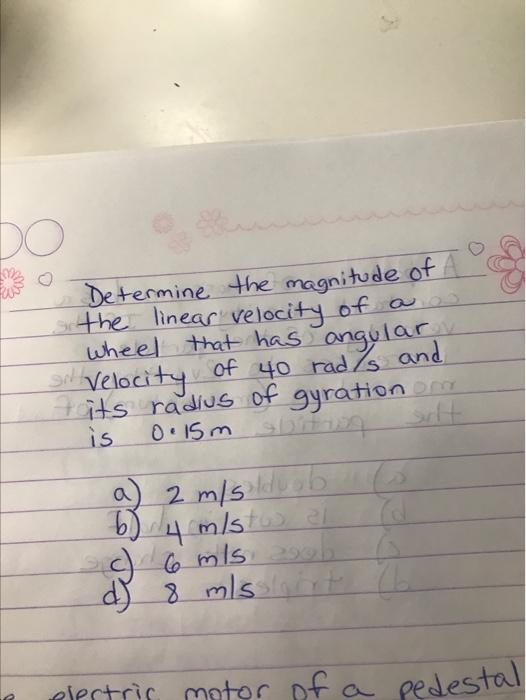 Determine the magnitude of
the linear velocity of a
wheel that has angular
velocity of 40 rad/s and
its radius of gyration
is 0.15m
a) 2 m/s
b) 4 m/s
c) 6 m/s
d) 8 m/s
electric motor of a pedestal